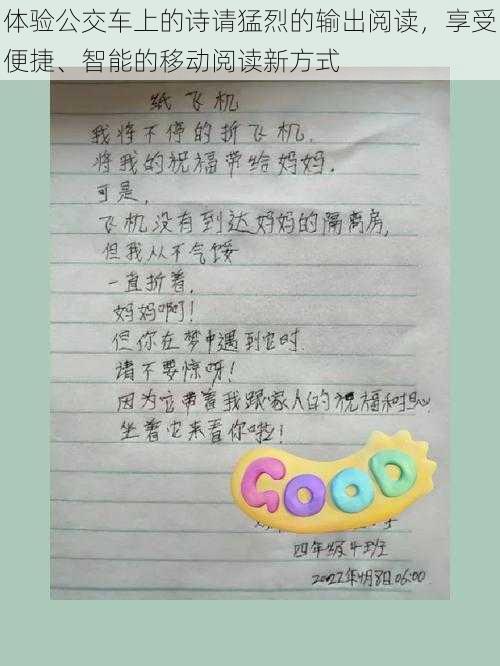 体验公交车上的诗请猛烈的输出阅读，享受
便捷、智能的移动阅读新方式
纸飞机
我将不停的折飞机，
将我的祝福带给妈妈，
可是，
飞机没有到达妈妈的隔离房，
但我从不气馁
一直折着，
妈妈啊！
但你在梦中遇到它时
请不要惊呀！
因为它带着我跟家人的祝福和
坐着它来看你啦！
GOOD
四年级4班
2022年4月8日06:00